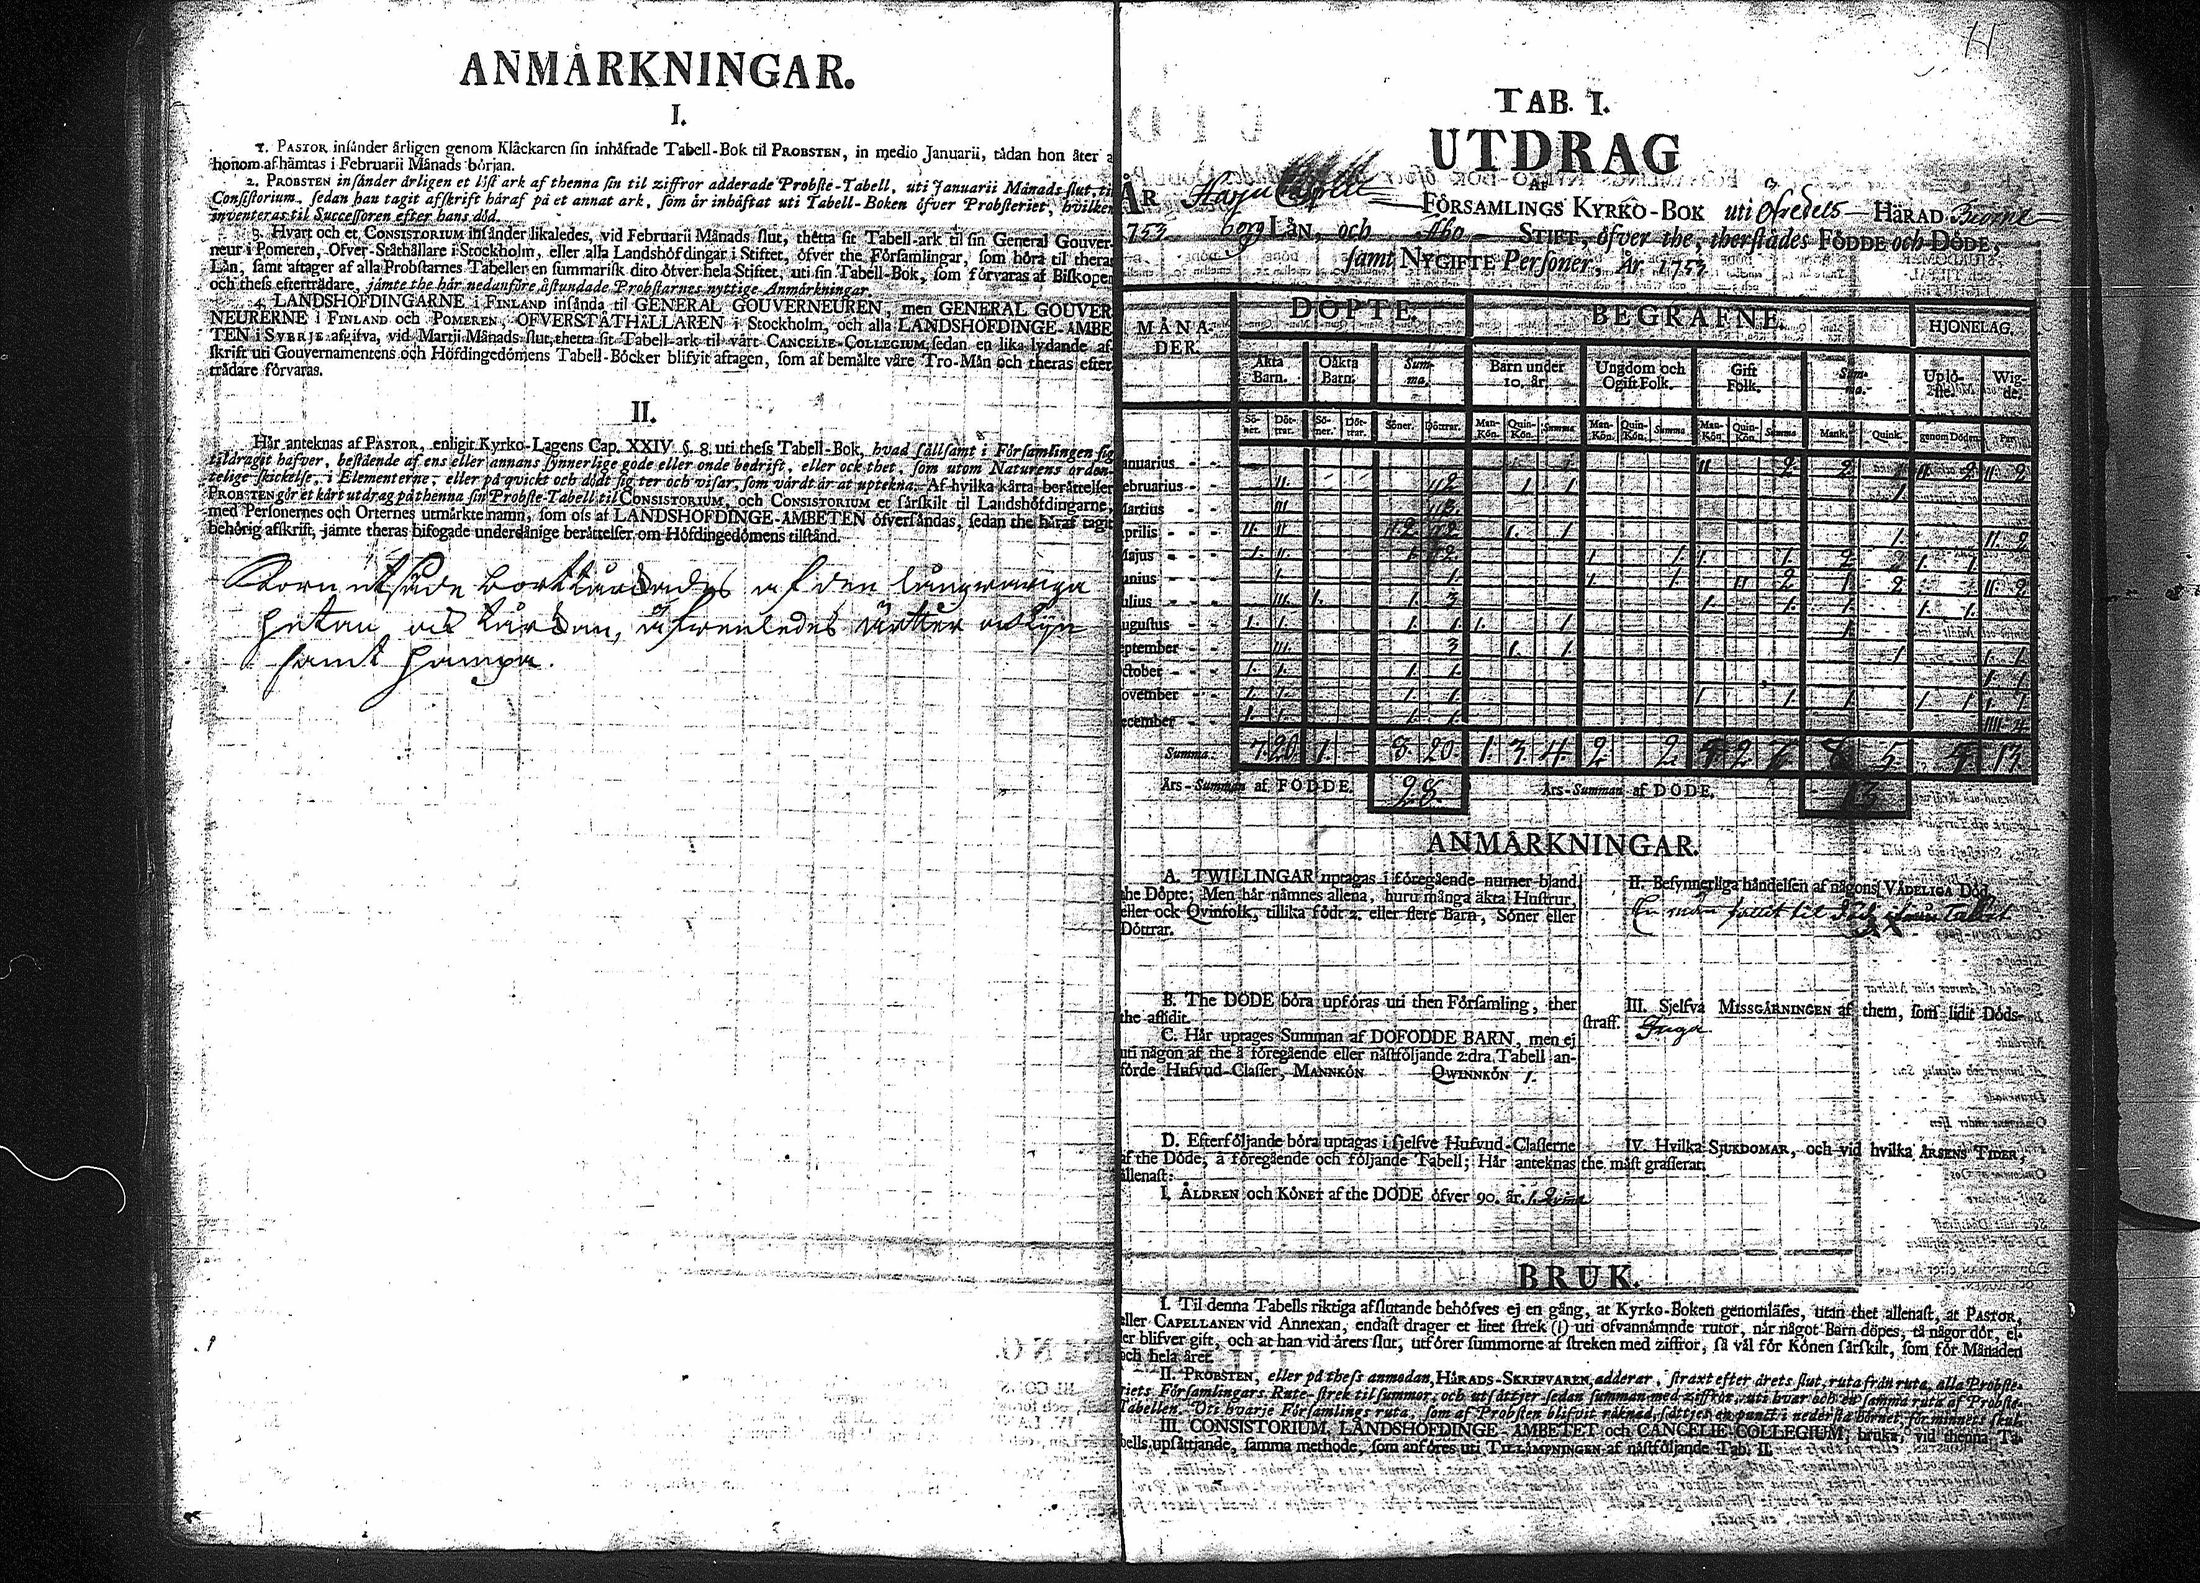 ANMÅRKNINGAR.
I.
1. PASTOR insånder årligen genom Klåckaren sin inhåftade Tabell-Bok til PROBSTEN, in medio Januarii, tådan hon åter a
honom afhåmtas i Februarii Månads början.
2. PROBSTEN insånder årligen et löst ark af thenna sin til ziffror adderade Probste-Tabell, uti Januarii Månads slut, til
Consistorium, sedan han tagit afskrift håraf på et annat ark, som år inhåftat uti Tabell-Boken öfver Probsteriet, hvilken
inventeras til Successoren efter hans död.
3. Hvart och et CONSISTORIUM insånder likaledes, vid Februarii Månads slut, thetta sit Tabell-ark til sin General Gouver-
neur i Pomeren, Öfver-Ståthållare i Stockholm, eller alla Landshöfdingar i Stiftet, öfver the Församlingar, som höra til theras
Lån, samt aftager af alla Probstarnes Tabeller en summarisk dito öfver hela Stiftet, uti sin Tabell-Bok, som förvaras af Biskopen
och thess eftertrådare, jåmte the hår nedanföre åstundade Probstarnes nyttige Anmårkningar.
4. LANDSHÖFDINGARNE i FINLAND insånda til GENERAL GOUVERNEUREN, men GENERAL GOUVER
NEURERNE i FINLAND och POMEREN, ÖFVERSTÅTHÅLLAREN i Stockholm, och alla LANDSHÖFDINGE-ÅMBE
TEN i SVERJE afgifva, vid Martii Månads slut, thetta sit Tabell-ark til vårt CANCELIE-COLLEGIUM, sedan en lika lydande af
skrift uti Gouvernamentens och Höfdingedömens Tabell-Böcker blifvit aftagen, som af bemålte våre Tro-Mån och theras efter
trådare förvaras.
II.
Hår anteknas af PASTOR, enligit Kyrko-Lagens Cap. XXIV §. 8. uti thess Tabell-Bok, hvad sållsamt i Församlingen sig
tildragit hafver, bestående af ens eller annans synnerlige gode eller onde bedrift, eller ock thet, som utom Naturens orden-
telige skickelse, i Elementerne, eller på qvickt och dödt sig ter och visar, som vårdt år at uptekna. Af hvilka kårta beråttelser
PROBSTEN gör et kårt utdrag på thenna sin Probste-Tabell til CONSISTORIUM, och CONSISTORIUM et sårskilt til Landshöfdingarne,
med Personernes och Orternes utmårkte namn, som oss af LANDSHÖFDINGE-ÅMBETEN öfversåndas, sedan the håraf tagit
behörig afskrift, jåmte theras bifogade underdånige beråttelser, om Höfdingedömens tilstånd.
Korn utsäde borttårckades af den långwariga
hetan och tårckan, äfwenledes ärtter och lijn
samt hampa.
TAB. I.
UTDRAG
AF
FÖRSAMLINGS KYRKO-BOK uti HÅRAD
ÅR 1753. borg LÅN, och Åbo STIFT, öfver the, therstådes FÖDDE och DÖDE,
samt NYGIFTE Personer, År 1753
MÅNA-DER. DÖPTE. BEGRAFNE. HJONELAG.
Åkta Barn. Oåkta Barn. Summa. Barn under 10. år. Ungdom och Ogift Folk. Gift Folk. Summa. Uplöste. Wigde.
Söner. Döttrar. Söner. Döttrar. Söner. Döttrar. Man-Kön. Quin-Kön. Summa Man-Kön. Quin-Kön. Summa Man-Kön. Quin-Kön. Summa Mank. Quink. genom Döden Par
anuarius II 2. 2. II 2 II. 2
ebruarius II. II 2 1. 1 1.
Martius III II 3.
prilis II. II II 2 II 2 1. 1 1. II. 2
Majus 1. II. 1. II 2 1 1 1. 1. 2 2 1. 1.
unius 1. 1. 1. 1. II 2 1. 2 II. 2
ulius III. 1. 1. 3 1. 1. 1. 1. 1.
ugustus 1. 1. 1. 1. 1. 1 1.
eptember III. 3 1. 1 1 1. 1
ctober 1. 1. 1. 1. 1. 1
ovember 1. 1. 1. 1. 1. 1. 1. 1. 1. 1. 1
ecember 1. 1. 1. 1. IIII. 4
Summa. 7. 20. 1. 8. 20. 1. 3. 4. 2 2. 2 6. 8. 5. 13.
Års-Summan af FÖDDE. 28. Års-Summan af DÖDE. 13
ANMÅRKNINGAR.
A. TWILLINGAR uptagas i föregående numer bland
the Döpte; Men hår nåmnes allena, huru många åkta Hustrur,
eller ock Qvinfolk, tillika födt 2. eller flere Barn, Söner eller
Döttrar.
B. The DÖDE böra upföras uti then Församling, ther
the afsidit.
C. Hår uptages Summan af DÖFÖDDE BARN, men ej
uti någon af the å föregående eller nåstföljande 2:dra Tabell an-
förde Hufvud-Classer, MANNKÖN QWINNKÖN 1.
D. Efterföljande böra uptagas i sjelfve Hufvud-Classerne
af the Döde, å föregående och följande Tabell; Hår anteknas
allenast:
I. ÅLDREN och KÖNET af the DÖDE öfver 90. år.
II. Besynnerliga håndelsen af någons VÅDELIGA Död.
En man fallit til död
III. Sjelfva MISSGÅRNINGEN af them, som lidit Döds-
straff. Inga
IV. Hvilka SJUKDOMAR, och vid hvilka ÅRSENS TIDER,
the måst grasserat:
BRUK.
I. Til denna Tabells riktiga afslutande behöfves ej en gång, at Kyrko-Boken genomlåses, utan thet allenast, at PASTOR,
eller CAPELLANEN vid Annexan, endast drager et litet strek (I) uti ofvannåmnde rutor, når något Barn döpes, tå någor dör, el-
er blifver gift, och at han vid årets slut, utförer summorne af streken med ziffror, så vål för Könen sårskilt, som för Månaden
och hela året.
II. PROBSTEN, eller på thess anmodan, HÅRADS-SKRIFVAREN, adderar, straxt efter årets slut, ruta från ruta, alla Probste-
riets Församlingars Rute-strek til summor, och utsåttjer sedan summan med ziffror, uti hvar och en samma ruta af Probste-
Tabellen. Uti hvarje Församlings ruta, som af Probsten blifvit råknad, såttjes en punct i nedersta hörnet, för minnets skul.
III. CONSISTORIUM, LANDSHÖFDINGE-ÅMBETET och CANCELIE-COLLEGIUM, bruka, vid thenna Ta-
bells upsåttjande, samma methode, som anföres uti TILLÅMPNINGEN af nåstföljande Tab. II.